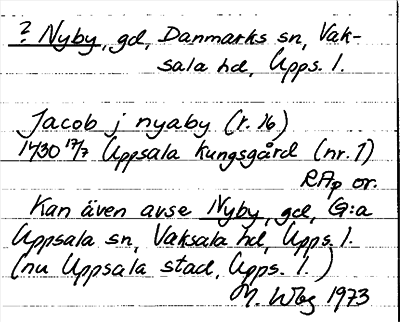 ? Nyby, gd, Danmarks sn, Vak-
sala hd, Upps. l.
Jacob j nyaby (r. 16)
1430 17/7 Uppsala kungsgård (nr. 1)
RAp or.
Kan även avse Nyby, gd, G:a
Uppsala sn, Vaksala hd, Upps. l.
(nu Uppsala stad, Upps. l.)
1973